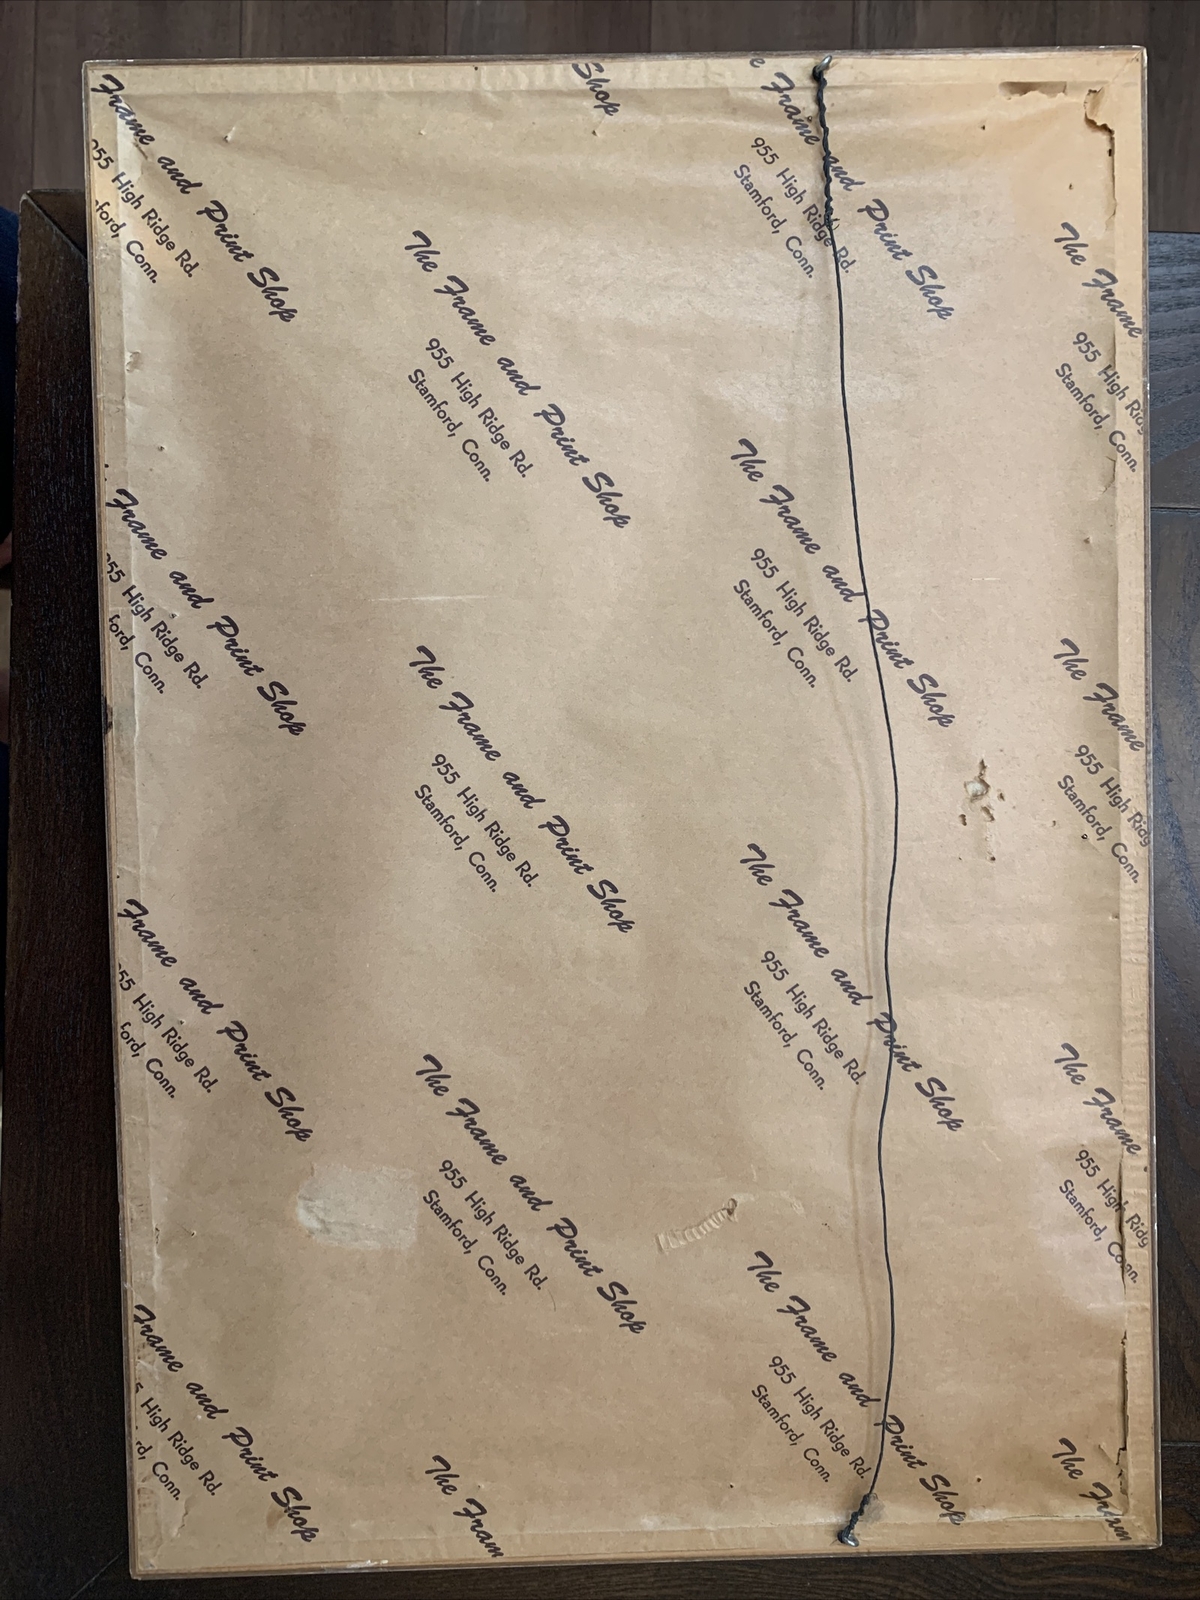 Shop
Frame and Print Shop
955 High Ridge Rd.
ford, Conn.
e Frame and Print Shop
955 High Ridge Rd.
Stamford, Conn.
The Frame and Print Shop
955 High Ridge Rd.
Stamford, Conn.
The Frame
955 High Ridg
Stamford, Conn.
Frame and Print Shop
955 High Ridge Rd.
ford, Conn.
The Frame and Print Shop
955 High Ridge Rd.
Stamford, Conn.
The Frame and Print Shop
955 High Ridge Rd.
Stamford, Conn.
The Frame
955 High Ridg
Stamford, Conn.
Frame and Print Shop
55 High Ridge Rd.
ford, Conn.
The Frame and Print Shop
955 High Ridge Rd.
Stamford, Conn.
The Frame and Print Shop
955 High Ridge Rd.
Stamford, Conn.
The Frame
955 High Ridg
Stamford, Conn.
Frame and Print Shop
5 High Ridge Rd.
rd, Conn.
The Fram
The Frame and Print Shop
955 High Ridge Rd.
Stamford, Conn.
The Fram